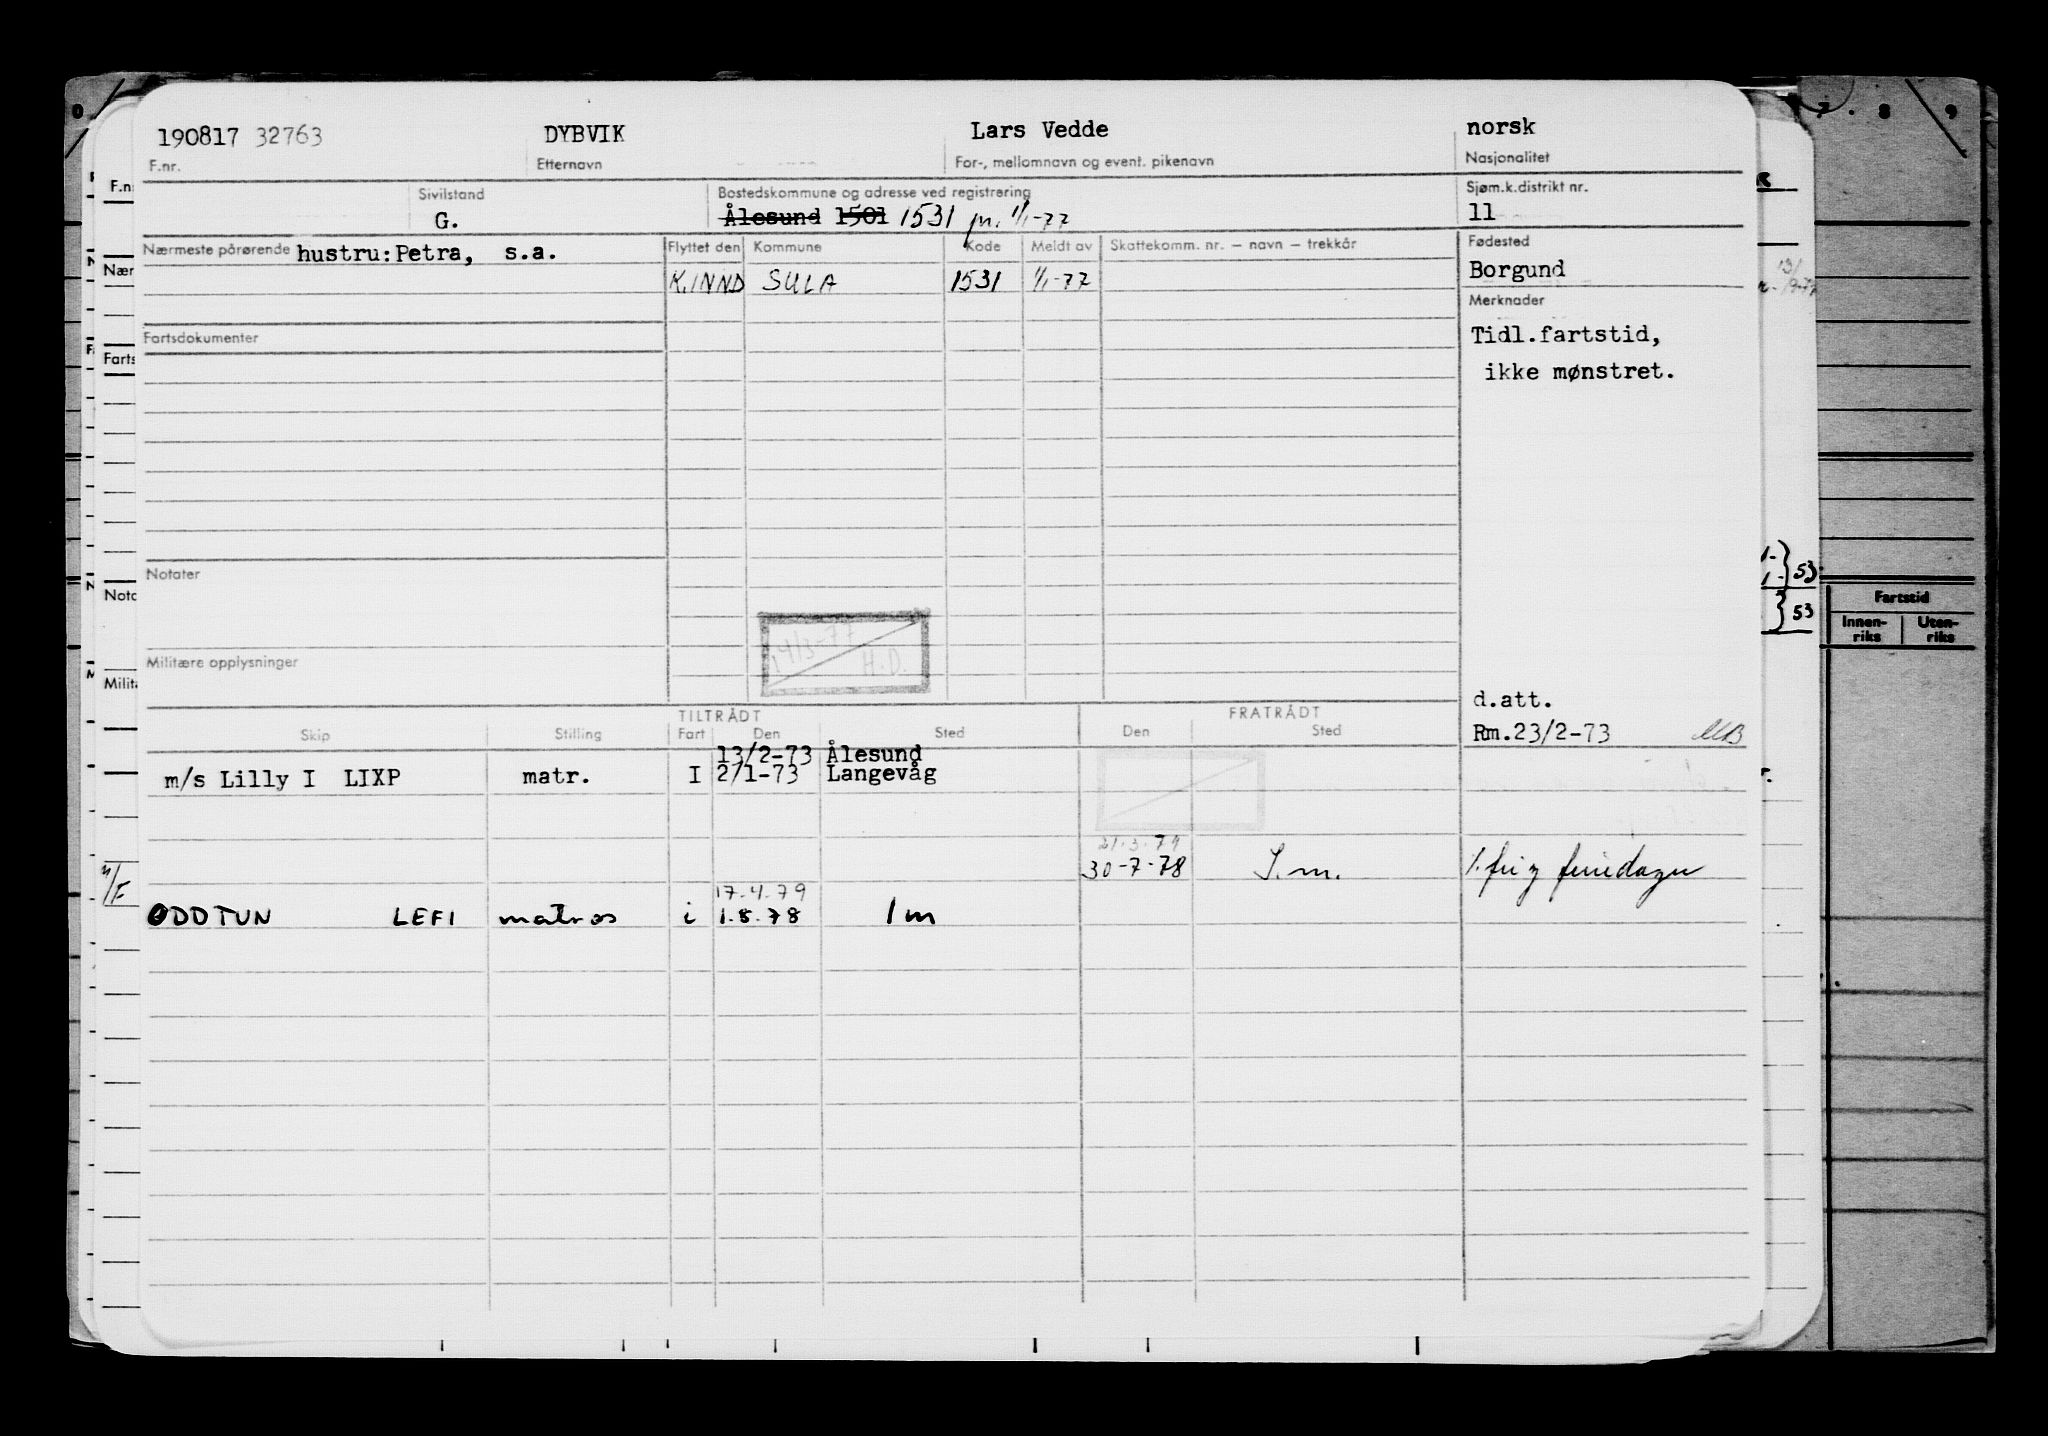 190817 32763 DYBVIK Lars Vedde norsk
F.nr. Etternavn For-, mellomnavn og event. pikenavn Nasjonalitet
Sivilstand Bostedskommune og adresse ved registrering Sjøm.k.distrikt nr.
G. Ålesund 1501 1531 pr. 1/1-77 11
Nærmeste pårørende hustru: Petra, s.a. Flyttet den Kommune Kode Meldt av Skattekomm. nr. – navn – trekkår Fødested
K.INND SULA 1531 1/1-77 Borgund
Merknader
Fartsdokumenter Tidl.fartstid,
ikke mønstret.
Notater
14/3-77
H.D.
Militære opplysninger
d.att.
TILTRÅDT FRATRÅDT
Skip Stilling Fart Den Sted Den Sted Rm.23/2-73 MB
13/2-73 Ålesund
m/s Lilly I LIXP matr. I 2/1-73 Langevåg
21.3.79
30-7-78 S.m.
M/F 17.4.79
ODDTUN LEFI matros i 1.8.78 1m
F.n
Nær
Farts
Notc
Milit
0
7 . 8 9
53
53
Fartstid
Innen-riks Uten-riks